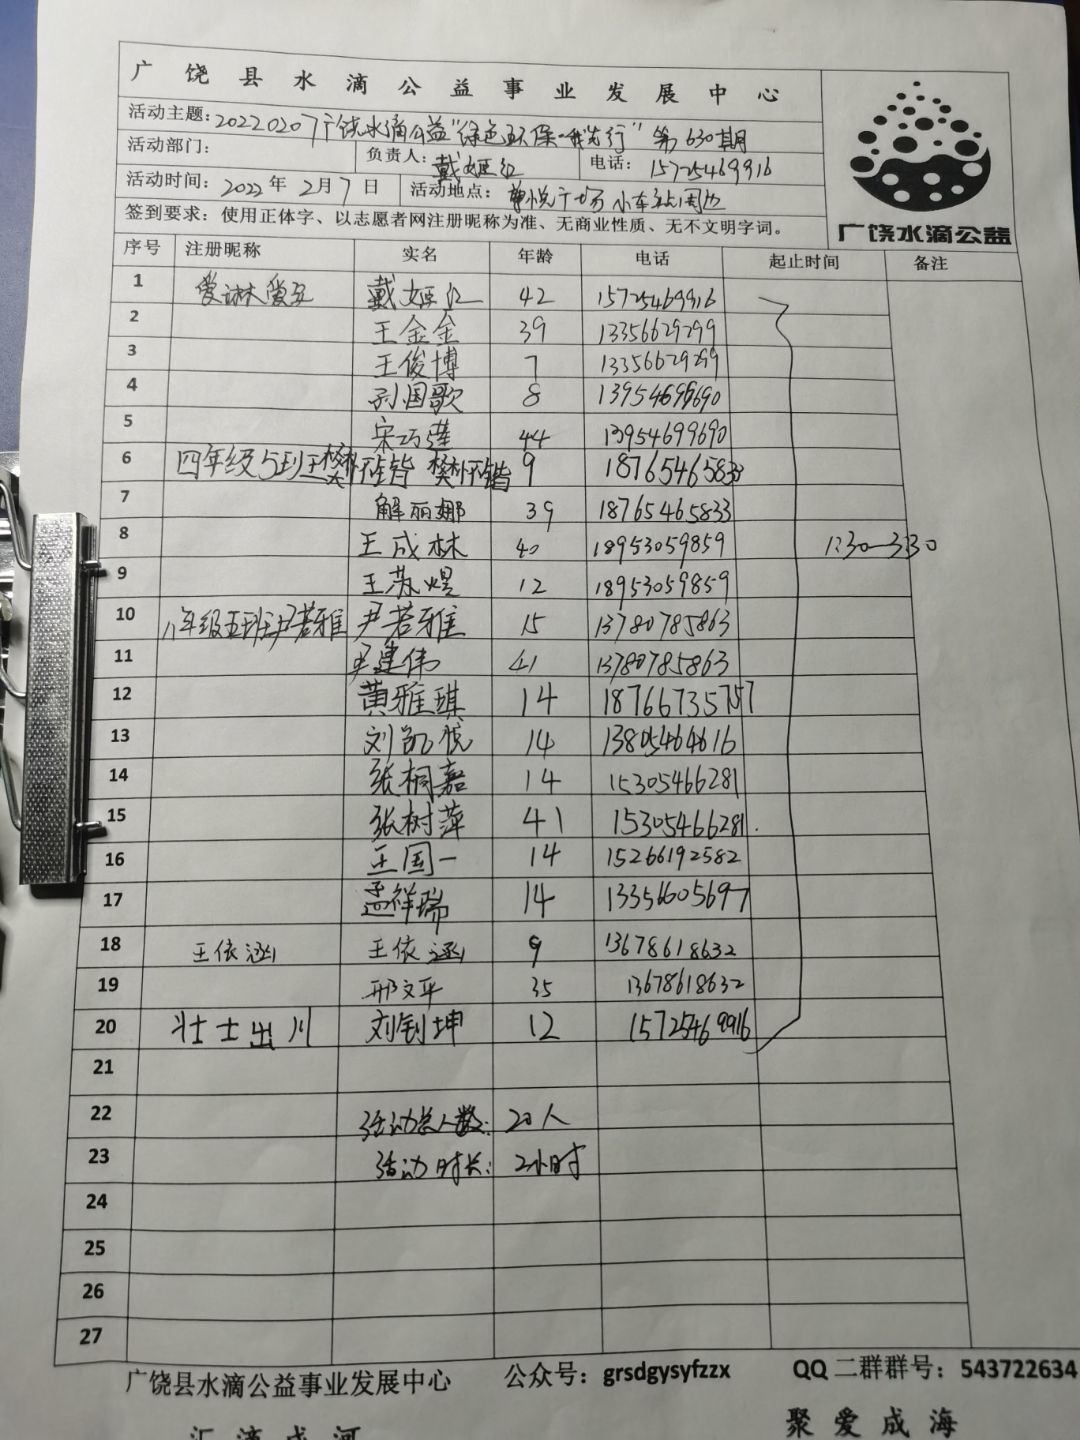 广饶县水滴公益事业发展中心
活动主题：20220207广饶水滴公益"绿色环保·我先行"第630期
活动部门： 负责人：戴姬红 电话：15725469916
活动时间：2022年2月7日 活动地点：尊悦广场小车站周边
签到要求：使用正体字、以志愿者网注册昵称为准、无商业性质、无不文明字词。
广饶水滴公益
序号 注册昵称 实名 年龄 电话 起止时间 备注
1 戴姬红 42 15725469916
2 王金金 39 13356629299
3 王俊博 7 13356629299
4 孙国歌 8 13954699690
5 宋巧莲 44 13954699690
6 四年级5班 樊怀锴 9 18765465833
7 解丽娜 39 18765465833
8 王成林 40 18953059859 1:30—3:30
9 王苏煜 12 18953059859
10 八年级五班尹若雅 尹若雅 15 13780785863
11 尹建伟 41 13780785863
12 黄雅琪 14 18766735757
13 刘凯悦 14 13805464616
14 张桐嘉 14 15305466281
15 张树萍 41 15305466281
16 王国一 14 15266192582
17 孟祥瑞 14 13356605697
18 王依涵 王依涵 9 13678618632
19 邢文平 35 13678618632
20 壮士出川 刘钊坤 12 15725469916
21
22 活动总人数：20人
23 活动时长：2小时
24
25
26
27
广饶县水滴公益事业发展中心 公众号：grsdgysyfzzx QQ二群群号：543722634
汇滴成河 聚爱成海